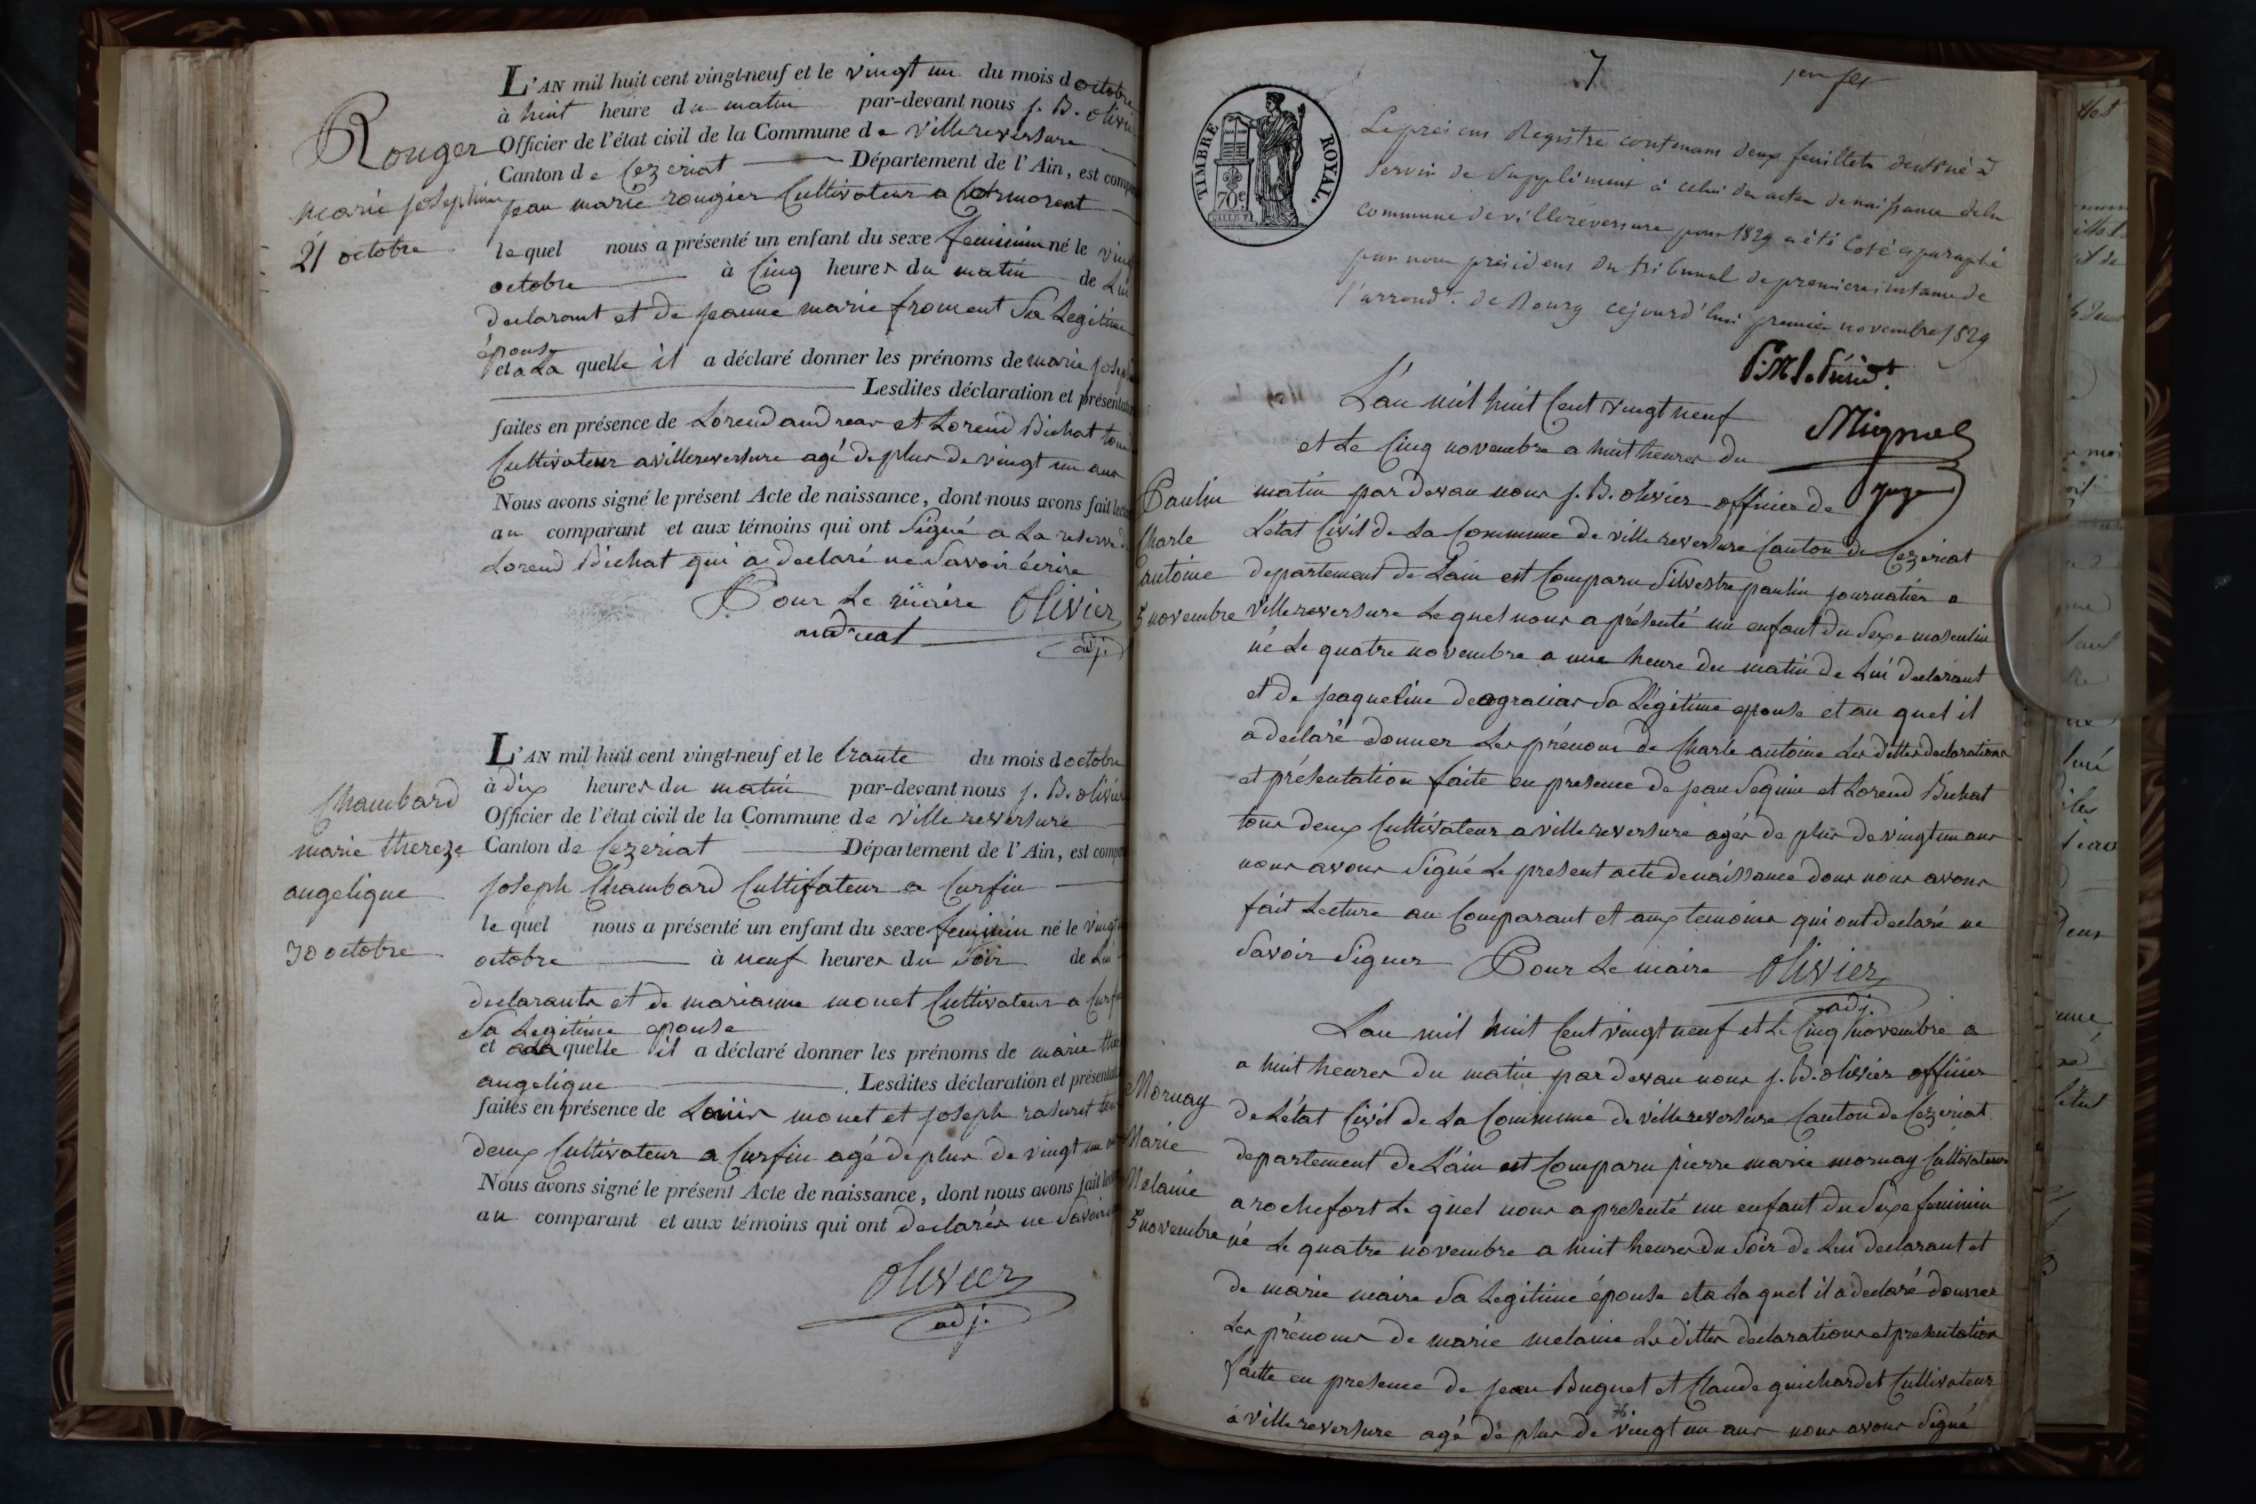 L'AN mil huit cent vingt-neuf et le vingt un du mois d octobre
à huit heure du matin par-devant nous J. B. olivier
Officier de l'état civil de la Commune de villereversure
Canton de Cezeriat Département de l'Ain, est comparu
jean marie rougier Cultivateur a
le quel nous a présenté un enfant du sexe feminin né le
octobre à Cinq heures du matin de Lui
declarant et de jeanne marie froment Sa Legitime
épouse
et a La quelle il a déclaré donner les prénoms de marie
Lesdites déclaration et présentation
faites en présence de Lorend andreas et Lorend Bichat tous
Cultivateur a villereversure agé de plus de vingt un ans
Nous avons signé le présent Acte de naissance, dont nous avons fait
au comparant et aux témoins qui ont Signé a La reserve de
Lorend Bichat qui a declaré ne Savoir écrire
Pour Le maire Olivier
andreas adj.
Rouger
marie josephine
21 octobre
L'AN mil huit cent vingt-neuf et le trante du mois d octobre
à dix heures du matin par-devant nous J. B. olivier
Officier de l'état civil de la Commune de villereversure
Canton de Cezeriat Département de l'Ain, est comparu
joseph Chambard Cultifateur a Curfin
le quel nous a présenté un enfant du sexe feminin né le vingt
octobre à neuf heures du Soir de Lui
declarants et de marianne monet Cultivateur a
Sa Legitime epouse
et a La quelle il a déclaré donner les prénoms de marie
angelique Lesdites déclaration et présentation
faites en présence de Louis monet et joseph tous
deux Cultivateur a Curfin agé de plus de vingt un
Nous avons signé le présent Acte de naissance, dont nous avons fait
au comparant et aux témoins qui ont declarés ne Savoir
Olivier
adj.
Chambard
marie thereze
angelique
30 octobre
7
TIMBRE ROYAL.
70c
Le présent Registre contenant deux feuillets destiné à
servir de Supplément à celui des actes de naissance de la
commune de villereversure pour 1829 a été Coté et paraphé
par nous président du tribunal de premiere instance de
l'arrondt. de Bourg cejourd'hui premier novembre 1829
Juge
L'an mil huit Cent vingt neuf
et Le Cinq novembre a huit heures du
matin par devan nous J. B. olivier officier de
L'état Civil de La Commune de villereversure Canton de Cezeriat
departement de Lain est Comparu Silvestre paulin journatier a
villereversure Le quel nous a présenté un enfant du Sexe masculin
né Le quatre novembre a une heure du matin de Lui declarant
et de jeaqueline deagracias Sa Légitime epouse et au quel il
a declaré donner Les prénoms de Charle antoine Les dittes declarations
et présentation faite en presence de jean Seguin et Lorend Bichat
tous deux Cultivateur a villereversure agés de plus de vingt un ans
nous avons Signé Le present acte de naissance dont nous avons
fait Lecture au Comparant et aux temoins qui ont declaré ne
Savoir Signer Pour Le maire Olivier
adj.
Paulin
Charle
antoine
5 novembre
Lan mil huit Cent vingt neuf et Le Cinq novembre a
a huit heures du matin par devan nous J. B. olivier officier
de L'état Civil de La Commune de villereversure Canton de Cezeriat
departement de L'ain est Comparu pierre marie mornay Cultivateur
a rochefort Le quel nous a presenté un enfant du Sexe feminin
né Le quatre novembre a huit heures du Soir de Lui declarant et
de marie maire Sa Legitime épouse et a La quel il a declaré donner
Les prénoms de marie melanie Les dittes declarations et presentation
faitte en presence de jean Buguet et Claude guichardet Cultivateur
à villereversure agé de plus de vingt un ans nous avons Signé
Mornay
Marie
Melanie
5 novembre